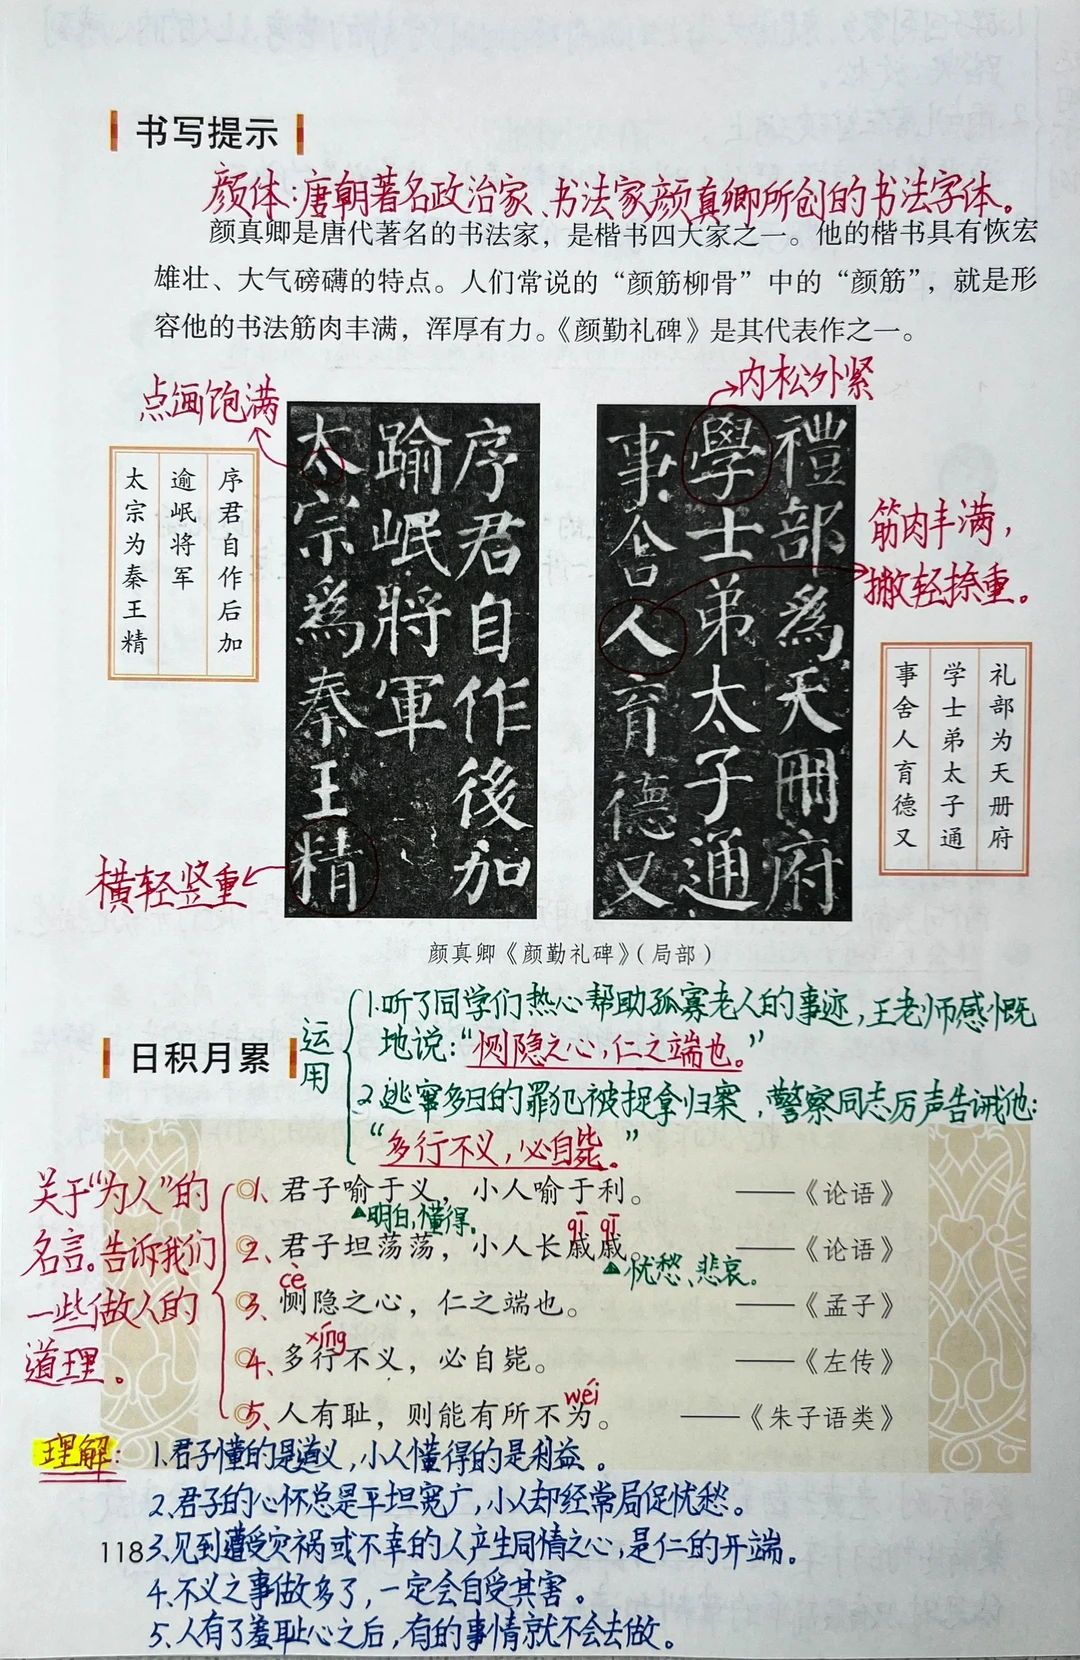 书写提示
颜体：唐朝著名政治家、书法家颜真卿所创的书法字体。
颜真卿是唐代著名的书法家，是楷书四大家之一。他的楷书具有恢宏
雄壮、大气磅礴的特点。人们常说的“颜筋柳骨”中的“颜筋”，就是形
容他的书法筋肉丰满，浑厚有力。《颜勤礼碑》是其代表作之一。
点画饱满
内松外紧
筋肉丰满，
撇轻捺重。
横轻竖重
序君自作后加
逾岷将军
太宗为秦王精
序君自作後加
踰岷將軍
太宗為秦王精
禮部為天冊府
學士弟太子通
事舍人育德又
礼部为天册府
学士弟太子通
事舍人育德又
颜真卿《颜勤礼碑》（局部）
日积月累
运用
1.听了同学们热心帮助孤寡老人的事迹，王老师感慨
地说：“恻隐之心，仁之端也。”
2.逃窜多日的罪犯被捉拿归案，警察同志厉声告诫他：
“多行不义，必自毙。”
关于“为人”的
名言。告诉我们
一些做人的
道理。
1、君子喻于义，小人喻于利。 ——《论语》
明白，懂得。
qī qī
2、君子坦荡荡，小人长戚戚。 ——《论语》
忧愁、悲哀。
cè
3、恻隐之心，仁之端也。 ——《孟子》
xíng
4、多行不义，必自毙。 ——《左传》
wéi
5、人有耻，则能有所不为。 ——《朱子语类》
理解：
1.君子懂的是道义，小人懂得的是利益。
2.君子的心怀总是平坦宽广，小人却经常局促忧愁。
3.见到遭受灾祸或不幸的人产生同情之心，是仁的开端。
4.不义之事做多了，一定会自受其害。
5.人有了羞耻心之后，有的事情就不会去做。
118